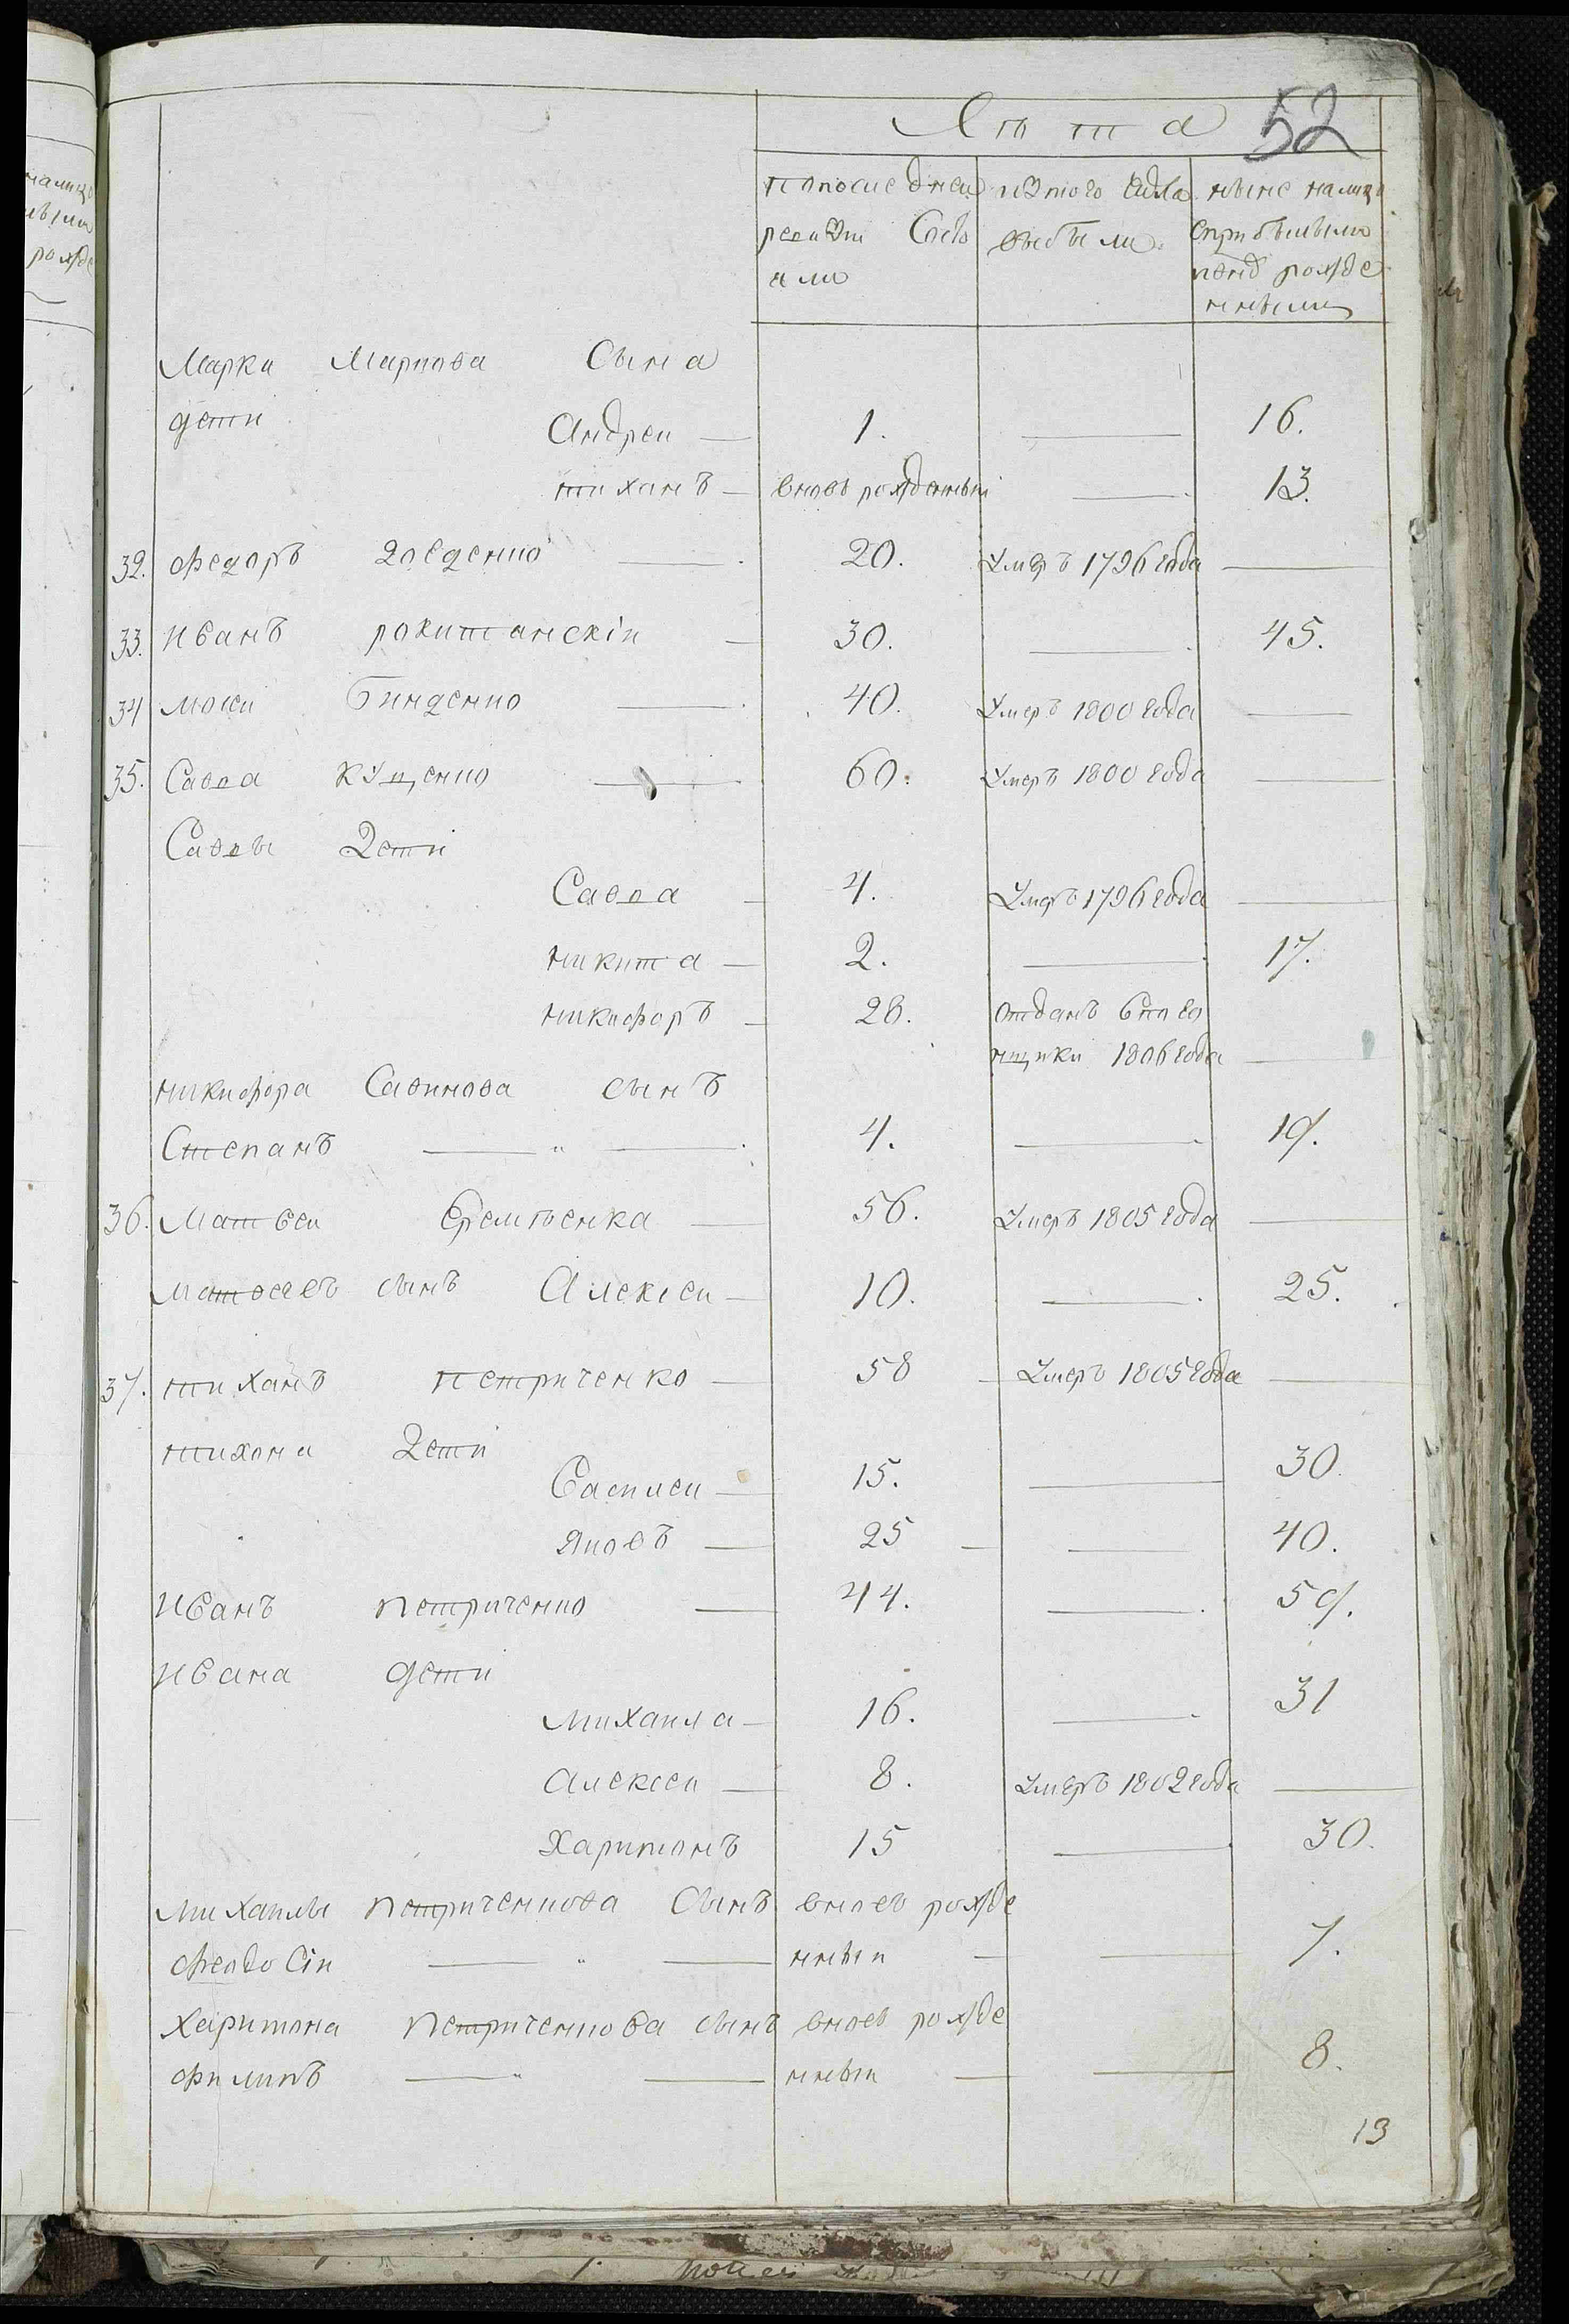 Лѣта 52
попоследнеи изтого числа ныне налицо
ревизіи Состо выбыли. Спрыбылыми
али ивнов рожде
нными
Марки Маркова Сына
дети Андреи — 1. — 16.
тихонъ — вновь рожденныи — 13.
32. федоръ довденко — 20. Умеръ 1796 года —
33. Иванъ рокитанскіи — 30. — 45.
34 Моисеи Бинденко — 40. Умеръ 1800 года —
35. Савва Кущенко — 60. Умеръ 1800 года —
Саввы Дети
Савва — 4. Умеръ 1796 года —
никита — 2. — 17.
никифоръ — 28. отданъ впого
нщики 1806 года —
никифора Савинова сынъ
Степанъ — " — 4. — 19.
36. Матвеи Еремѣенка — 56. Умеръ 1805 года —
Матвеевъ сынъ Алексеи — 10. — 25.
37. тихонъ Петриченко — 58 — Умеръ 1805 года —
тихона Дети
Василеи — 15. — 30.
Яковъ — 25 — — 40.
Иванъ Петриченко — 44. — 59.
Ивана Дети
Михаила — 16. — 31
Алексеи — 8. Умеръ 1802 года —
Харитонъ 15 — 30.
Михаилы Петриченкова Сынъ вновь рожде
феодосіи — " — нныи — — 7.
Харитона Петриченкова сынъ вновь рожде
филипъ — " — нныи — — 8.
13